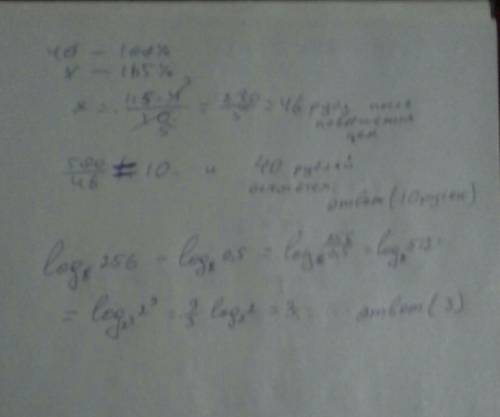 40 — 100%
x — 115%
x = = 230/5 = 46 руб после
повышения
цен
500/46 ≠ 10 и 40 рублей
останется
ответ (10 ручек)
log₈256 − log₈0,5 = log₈ 256/0,5 = log₈512
= log₂³2⁹ = 9/3 log₂2 = 3. ответ (3)